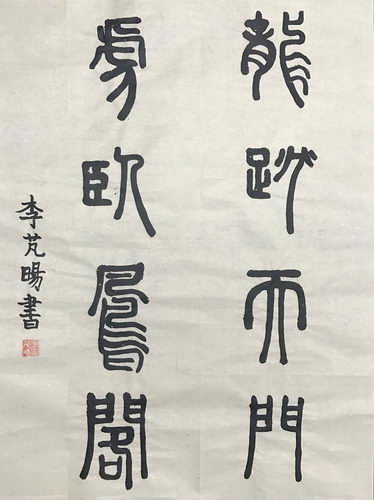 龍跳天門
虎臥鳳閣
李芃暘書